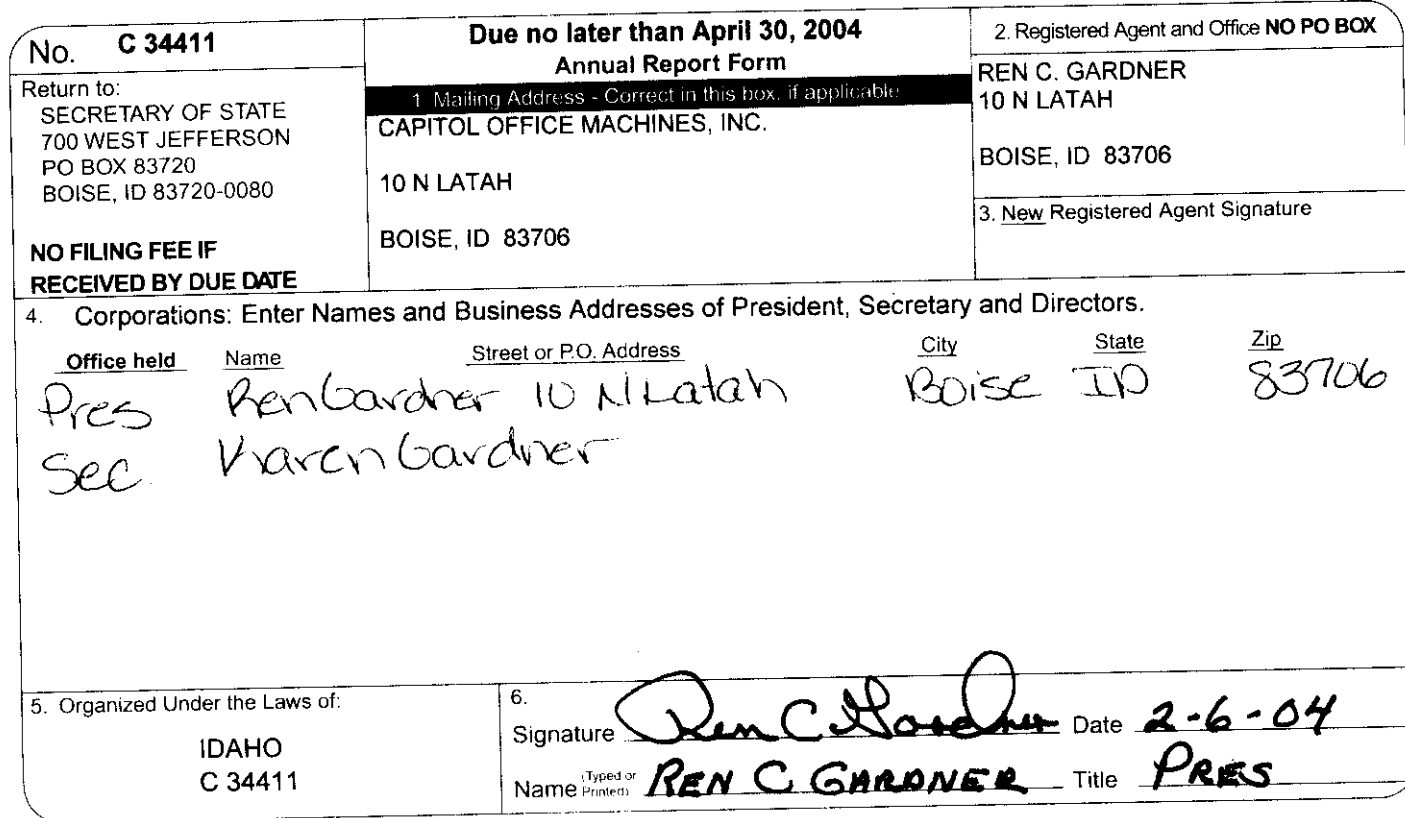 No. C 34411
Return to:
SECRETARY OF STATE
700 WEST JEFFERSON
PO BOX 83720
BOISE, ID 83720-0080
NO FILING FEE IF
RECEIVED BY DUE DATE
Due no later than April 30, 2004
Annual Report Form
1 Mailing Address - Correct in this box, if applicable
CAPITOL OFFICE MACHINES, INC.
10 N LATAH
BOISE, ID 83706
2. Registered Agent and Office NO PO BOX
REN C. GARDNER
10 N LATAH
BOISE, ID 83706
3. New Registered Agent Signature
4. Corporations: Enter Names and Business Addresses of President, Secretary and Directors.
Office held Name Street or P.O. Address City State Zip
Pres Ren Gardner 10 N Latah Boise ID 83706
Sec. Karen Gardner
5. Organized Under the Laws of:
IDAHO
C 34411
6.
Signature Ren C Gardner Date 2-6-04
Name (Typed or Printed) REN C GARDNER Title PRES